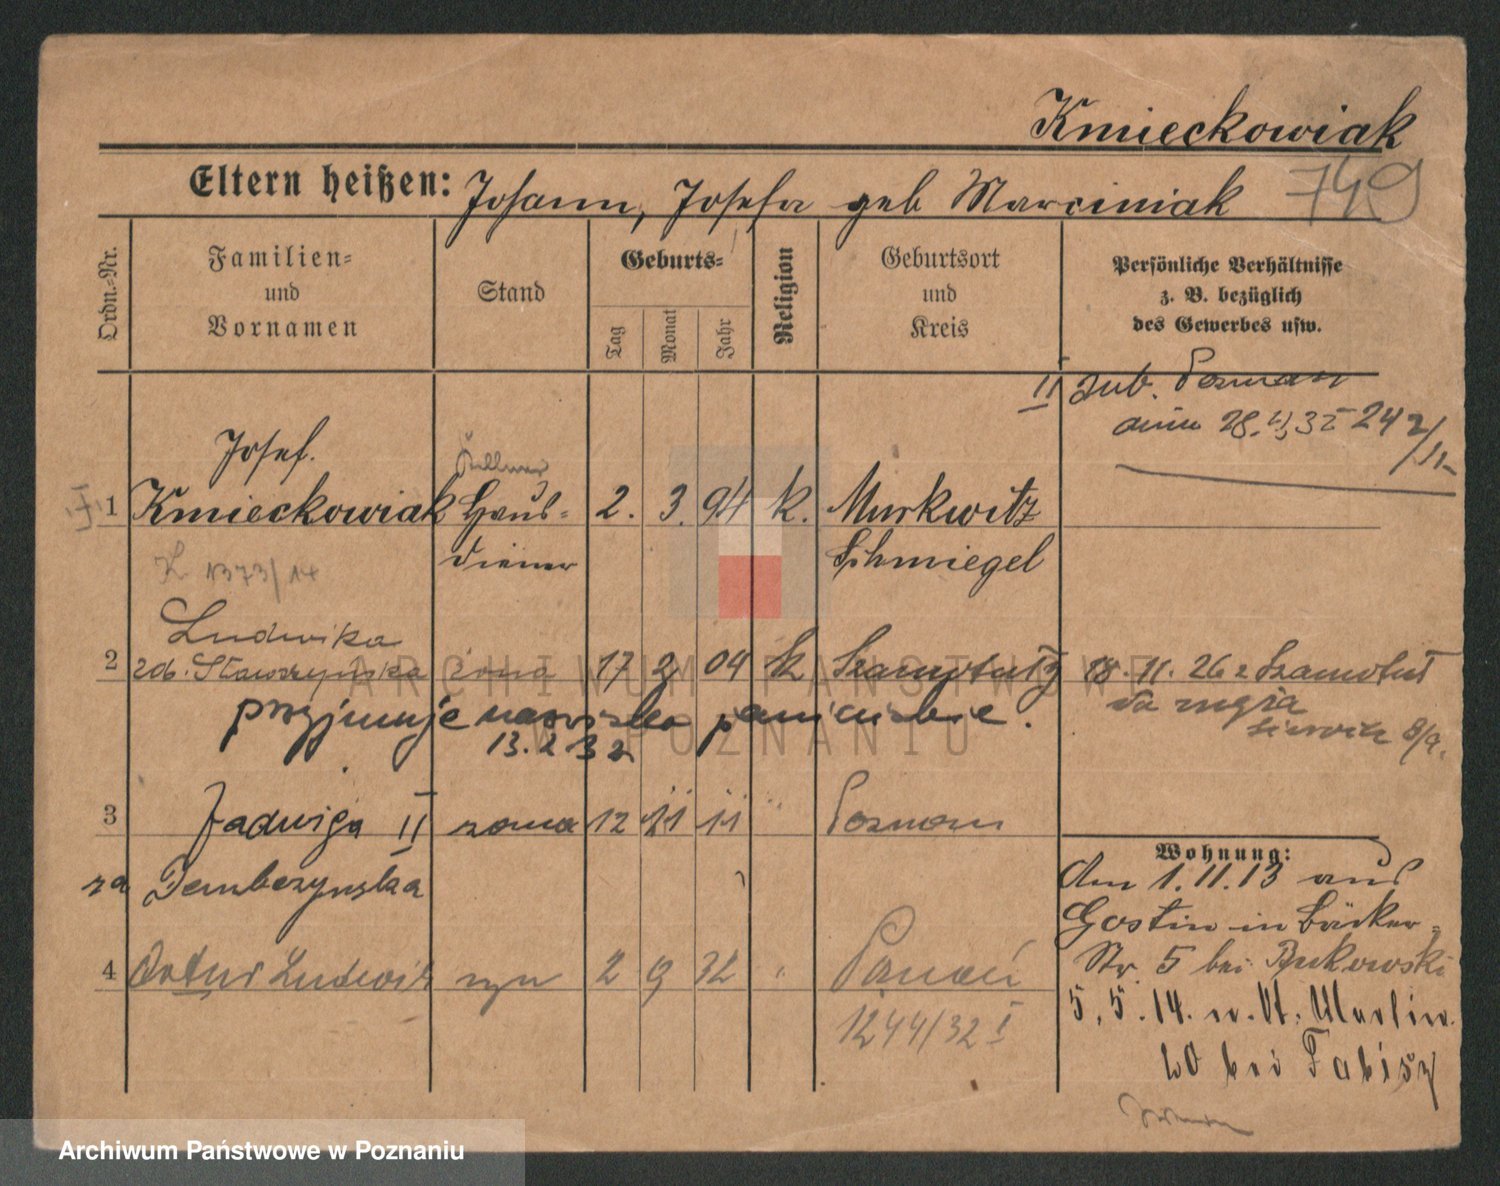 Kmieckowiak
749
Eltern heißen: Johann, Josefa geb Marciniak
Ordn.=Nr.
Familien=
und
Vornamen
Stand
Geburts=
Tag
Monat
Jahr
Religion
Geburtsort
und
Kreis
Persönliche Verhältnisse
z. B. bezüglich
des Gewerbes usw.
II
28. 32 24
Josef.
1 Kmieckowiak Haus= 2. 3. 94 k. Murkwitz
diener Schmiegel
K 1373/14
Ludwika
2 zdb. żona 17 2 04 k Szamotuły 18. 11. 26 z Szamotuł
do męża
przyjmuje nazwisko panieńskie.
13. 2 32
3 Jadwiga II żona 12 11 11 " Poznań
za Dembczynska
4 Artur Ludwik syn 2 9 32 " Poznań
1244/32 I
Wohnung:
Am 1. 11. 13 aus
Gostin in Bäcker=
Str. 5 bei Bukowski
5. 5. 14. n. St. Martin.
20 bei Fabisz
ARCHIWUM PAŃSTWOWE
W POZNANIU
Archiwum Państwowe w Poznaniu